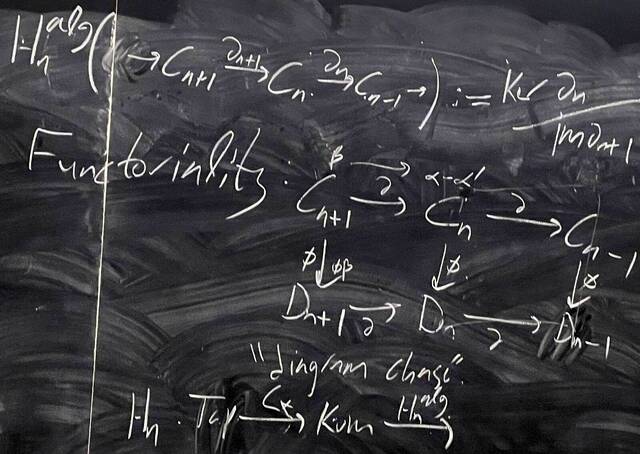 Hₙᵃˡᵍ( → Cₙ₊₁ →^{∂ₙ₊₁} Cₙ →^{∂ₙ} Cₙ₋₁ → ) := Ker ∂ₙ / im ∂ₙ₊₁
Functoriality: β → α-α'
Cₙ₊₁ →^{∂} Cₙ →^{∂} Cₙ₋₁
φ ↓ φβ ↓ φ ↓ φ
Dₙ₊₁ →_{∂} Dₙ →_{∂} Dₙ₋₁
"diagram chase".
Hₙ : Top →^{C_*} Kom →^{Hₙᵃˡᵍ}